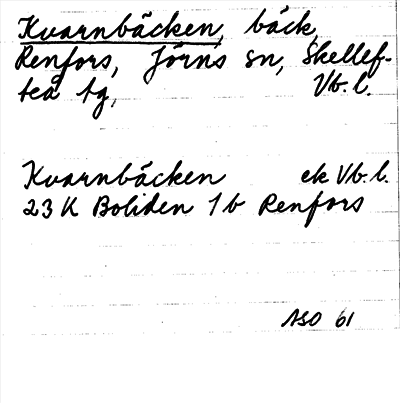 Kvarnbäcken, bäck,
Renfors, Jörns sn, Skellef-
teå tg, Vb. l.
Kvarnbäcken ek Vb. l.
23 K Boliden 1 b Renfors
ASO 61